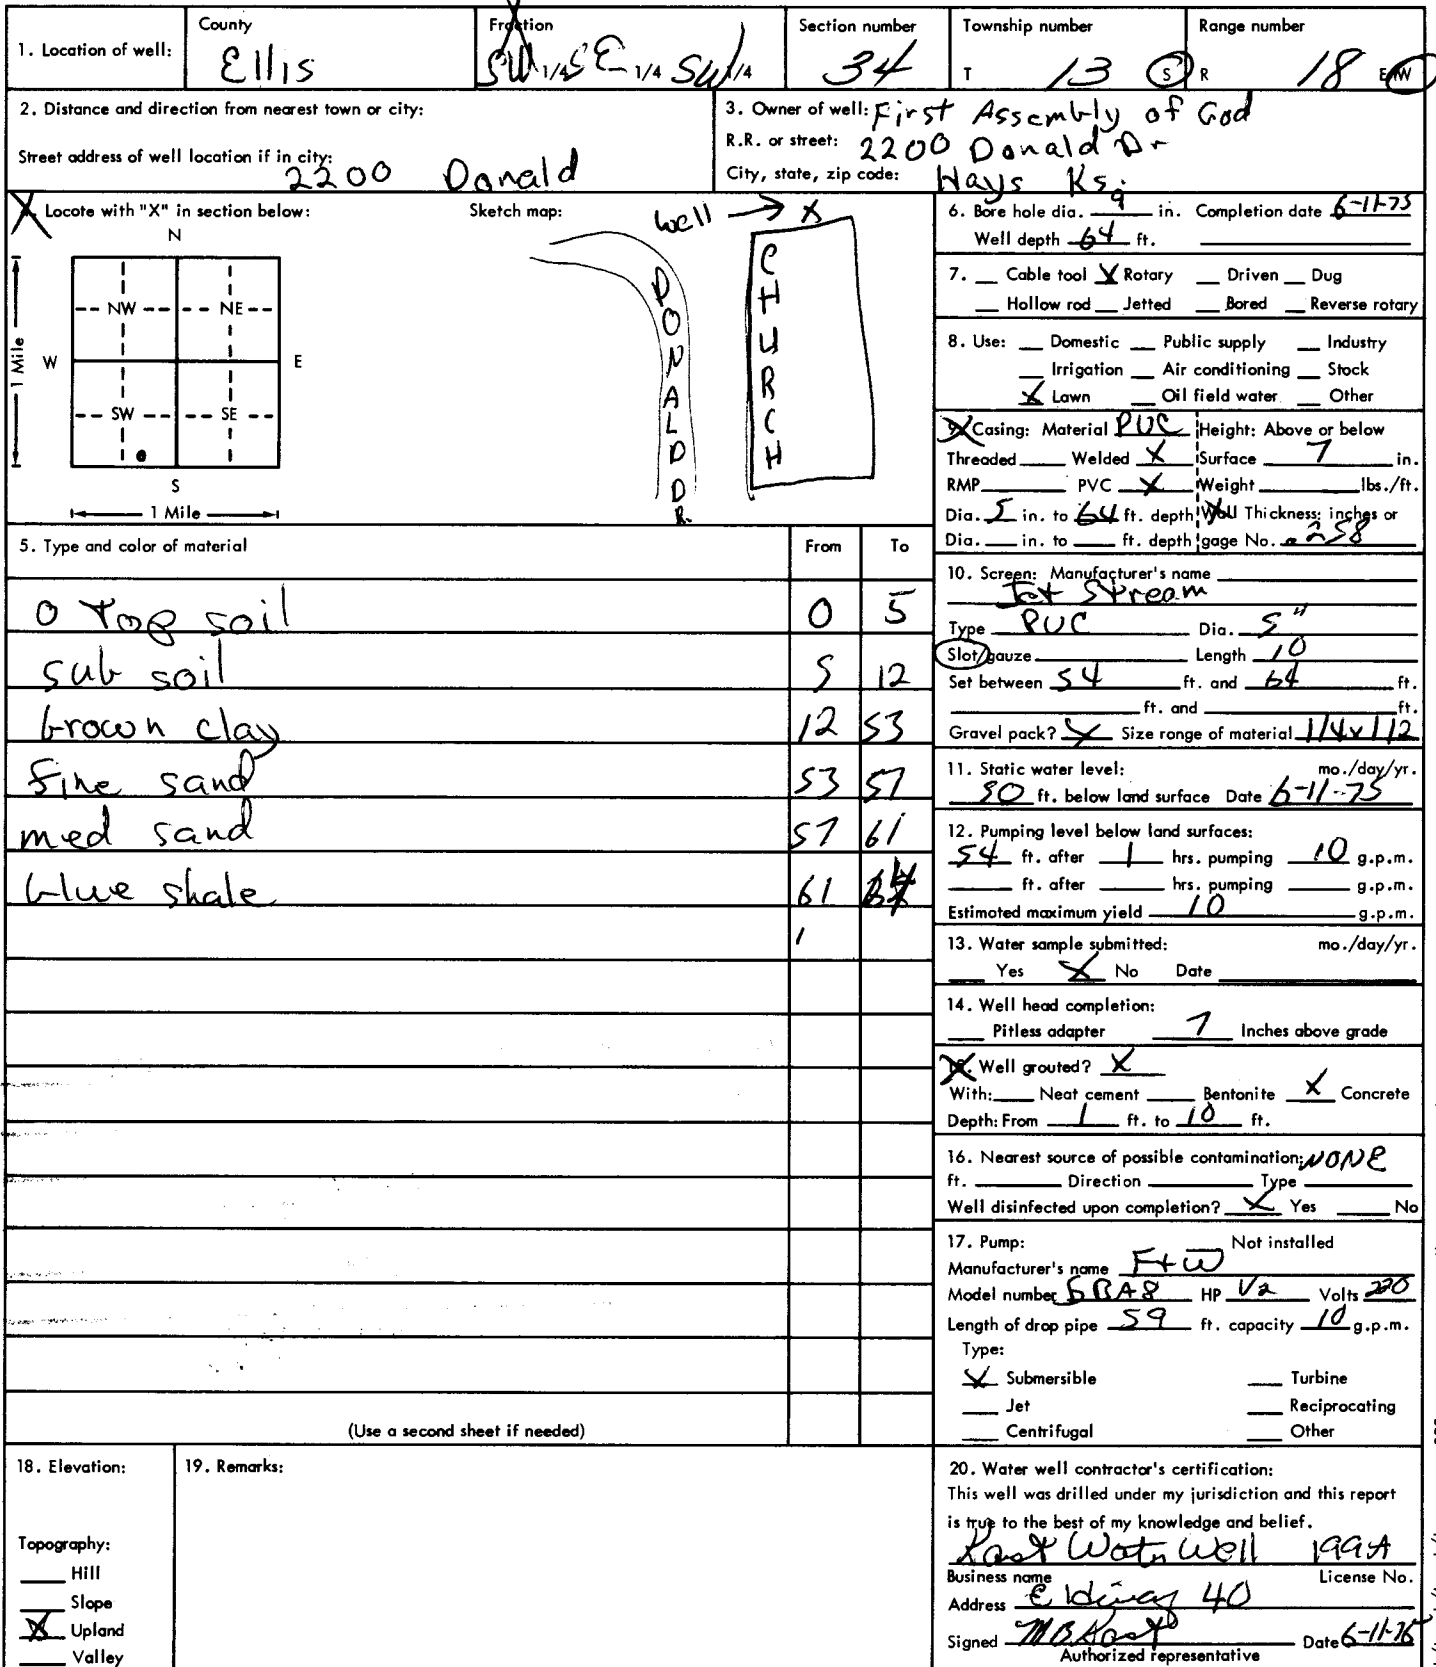 1. Location of well:
County
Ellis
Fraction
SW 1/4 SE 1/4 SW 1/4
Section number
34
Township number
T 13 S
Range number
R 18 E/W
2. Distance and direction from nearest town or city:
Street address of well location if in city:
2200 Donald
3. Owner of well: First Assembly of God
R.R. or street: 2200 Donald Dr
City, state, zip code: Hays Ks.
Locate with "X" in section below:
Sketch map:
N
NW NE
W E
SW SE
S
1 Mile
1 Mile
well → X
CHURCH
DONALD DR.
5. Type and color of material From To
0 Top soil 0 5
sub soil 5 12
brown clay 12 53
fine sand 53 57
med sand 57 61
blue shale 61 64
(Use a second sheet if needed)
6. Bore hole dia. 9 in. Completion date 6-11-75
Well depth 64 ft.
7. Cable tool X Rotary Driven Dug
Hollow rod Jetted Bored Reverse rotary
8. Use: Domestic Public supply Industry
Irrigation Air conditioning Stock
X Lawn Oil field water Other
9. Casing: Material PVC Height: Above or below
Threaded Welded X Surface 7 in.
RMP PVC X Weight lbs./ft.
Dia. 5 in. to 64 ft. depth Wall Thickness: inches or
Dia. in. to ft. depth gage No. .258
10. Screen: Manufacturer's name
Jet Stream
Type PVC Dia. 5"
Slot/gauze Length 10
Set between 54 ft. and 64 ft.
ft. and ft.
Gravel pack? X Size range of material 1/4x1/2
11. Static water level: mo./day/yr.
30 ft. below land surface Date 6-11-75
12. Pumping level below land surfaces:
54 ft. after 1 hrs. pumping 10 g.p.m.
ft. after hrs. pumping g.p.m.
Estimated maximum yield 10 g.p.m.
13. Water sample submitted: mo./day/yr.
Yes X No Date
14. Well head completion:
Pitless adapter 7 Inches above grade
Well grouted? X
With: Neat cement Bentonite X Concrete
Depth: From 1 ft. to 10 ft.
16. Nearest source of possible contamination: NONE
ft. Direction Type
Well disinfected upon completion? X Yes No
17. Pump: Not installed
Manufacturer's name F+W
Model number HP 1/2 Volts 220
Length of drop pipe 59 ft. capacity 10 g.p.m.
Type:
X Submersible Turbine
Jet Reciprocating
Centrifugal Other
18. Elevation:
Topography:
Hill
Slope
X Upland
Valley
19. Remarks:
20. Water well contractor's certification:
This well was drilled under my jurisdiction and this report
is true to the best of my knowledge and belief.
Kast Water Well 199A
Business name License No.
Address E Hiway 40
Signed MB Kast Date 6-11-75
Authorized representative